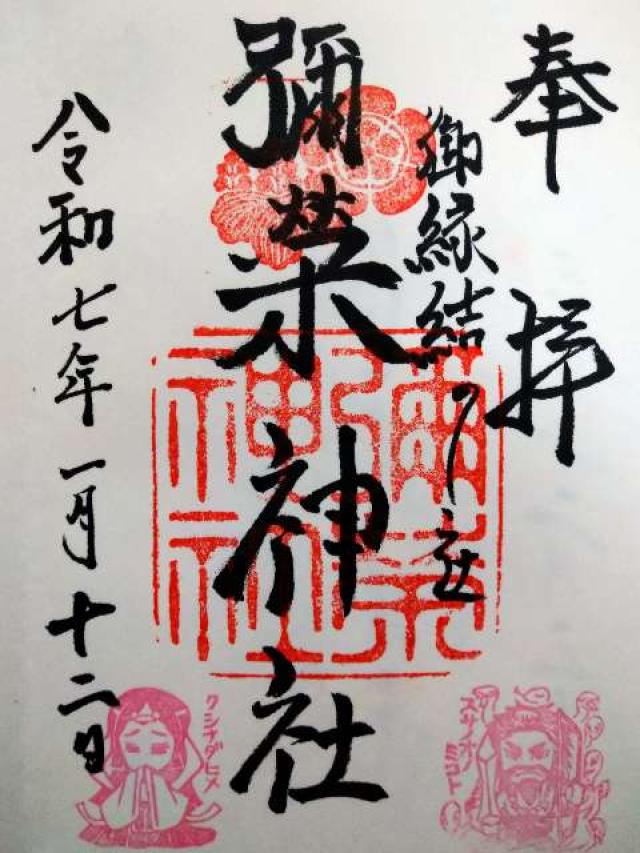 奉拝
御縁結びの社
彌榮神社
令和七年一月十二日
彌榮
神社
スサノオノ
ミコト
クシナダヒメ